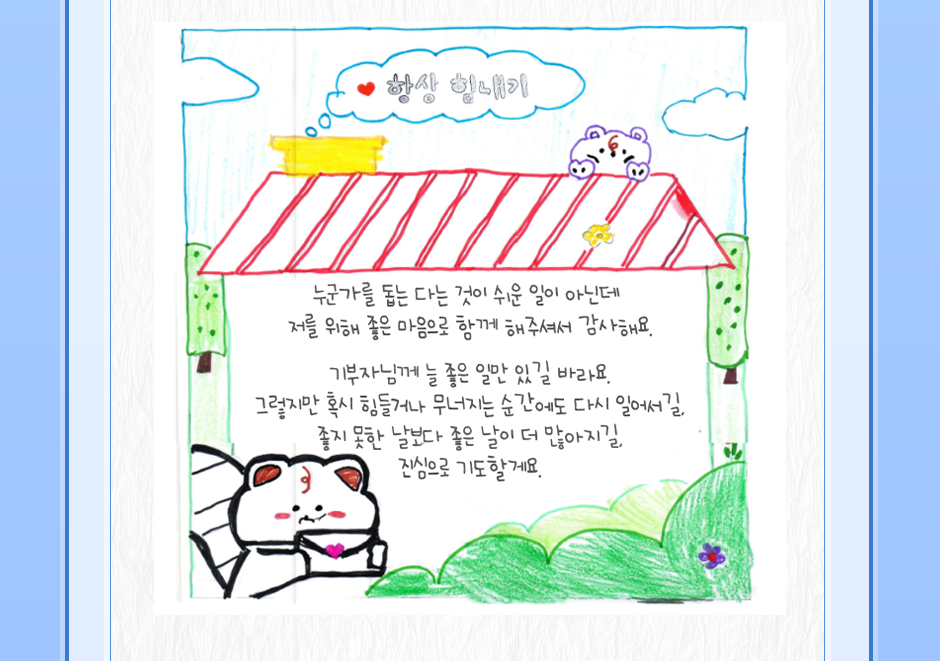 항상 힘내기
누군가를 돕는 다는 것이 쉬운 일이 아닌데
저를 위해 좋은 마음으로 함께 해주셔서 감사해요.
기부자님께 늘 좋은 일만 있길 바라요.
그렇지만 혹시 힘들거나 무너지는 순간에도 다시 일어서길,
좋지 못한 날보다 좋은 날이 더 많아지길,
진심으로 기도할게요.